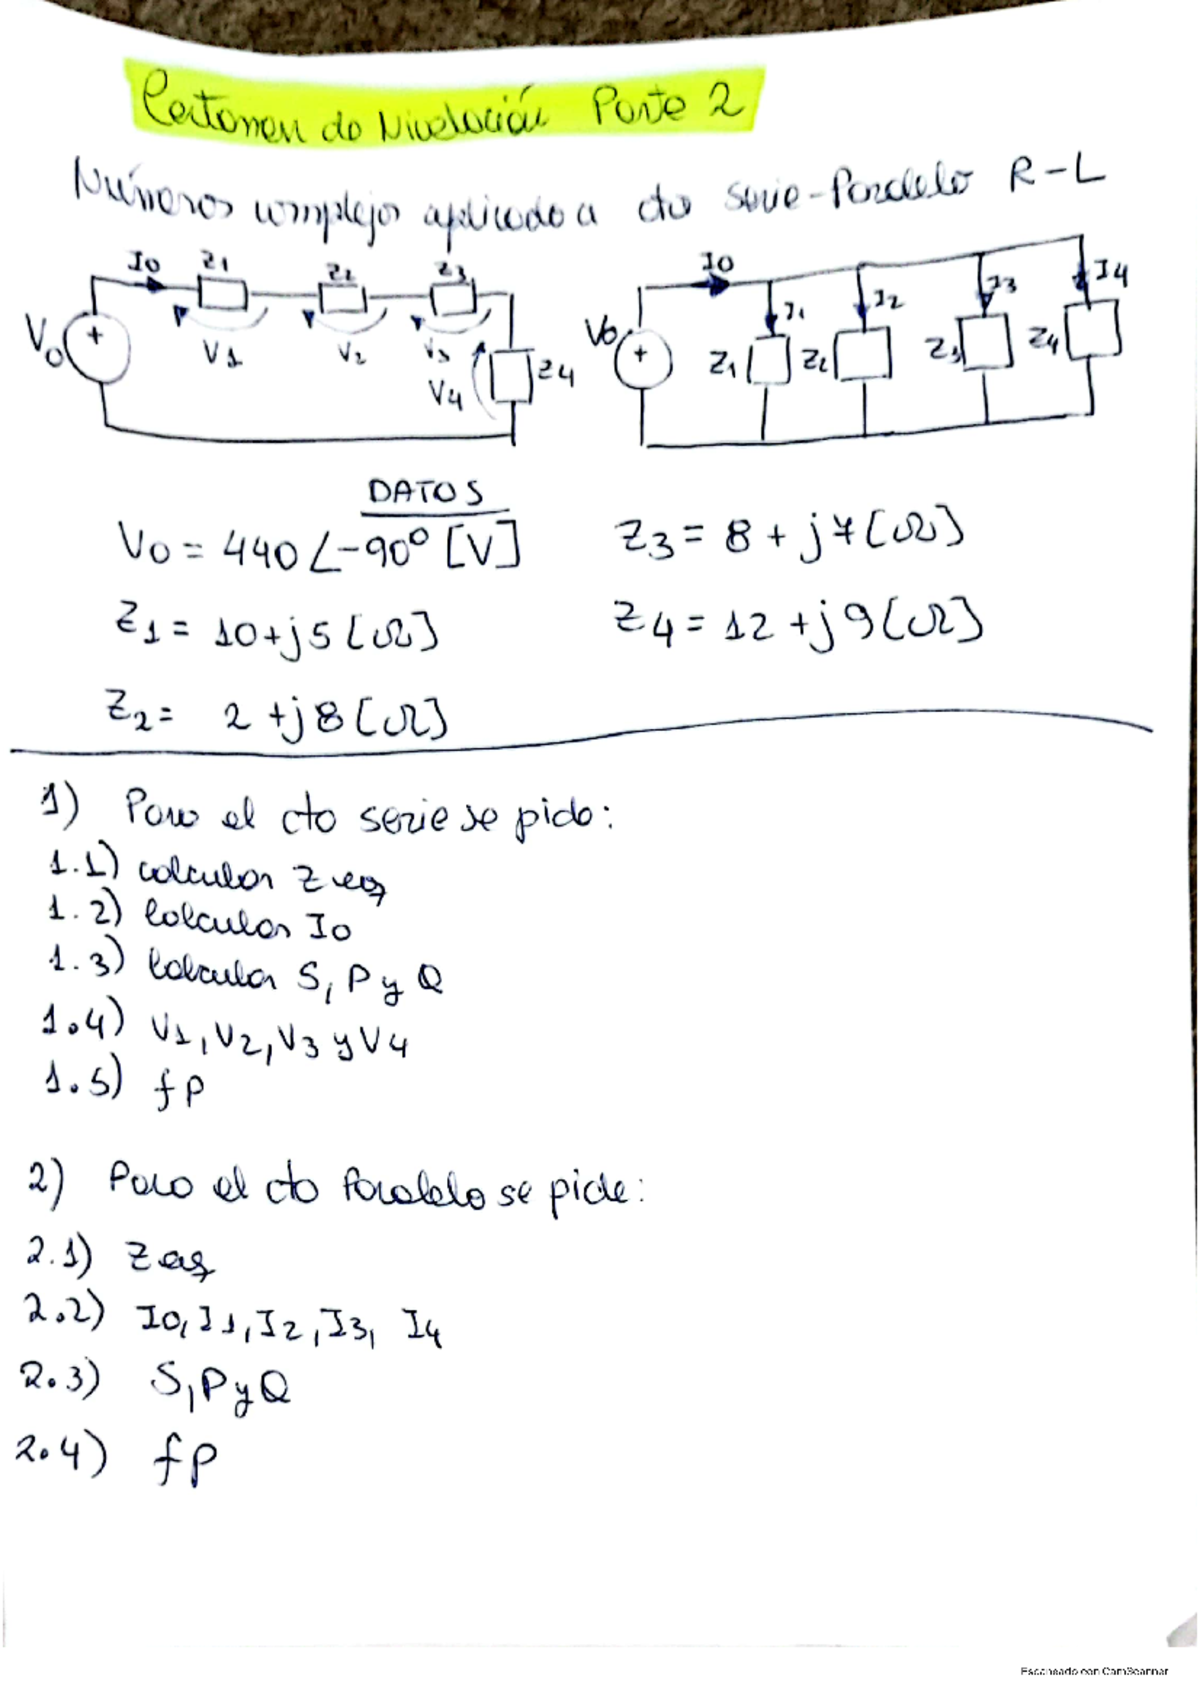 Certamen de Nivelación Parte 2
Números complejos aplicado a cto serie-Paralelo R-L
I0 Z1 Z2 Z3
V0 + V1 V2 V3 V4 Z4
I0 I1 I2 I3 I4
V0 + Z1 Z2 Z3 Z4
DATOS
V0 = 440∠-90° [V]
Z3 = 8 + j7 [Ω]
Z1 = 10+j5 [Ω]
Z4 = 12 +j9 [Ω]
Z2 = 2 +j8 [Ω]
1) Para el cto serie se pide:
1.1) calcular Zeq
1.2) Calcular I0
1.3) Calcular S, P y Q
1.4) V1, V2, V3 y V4
1.5) fP
2) Para el cto Paralelo se pide:
2.1) Zeq
2.2) I0, I1, I2, I3, I4
2.3) S, P y Q
2.4) fP
Escaneado con CamScanner